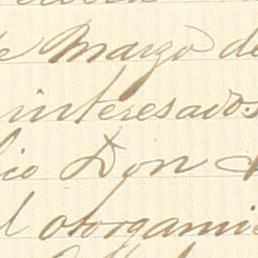 de Marzo de
interesados
Don
el otorgamie